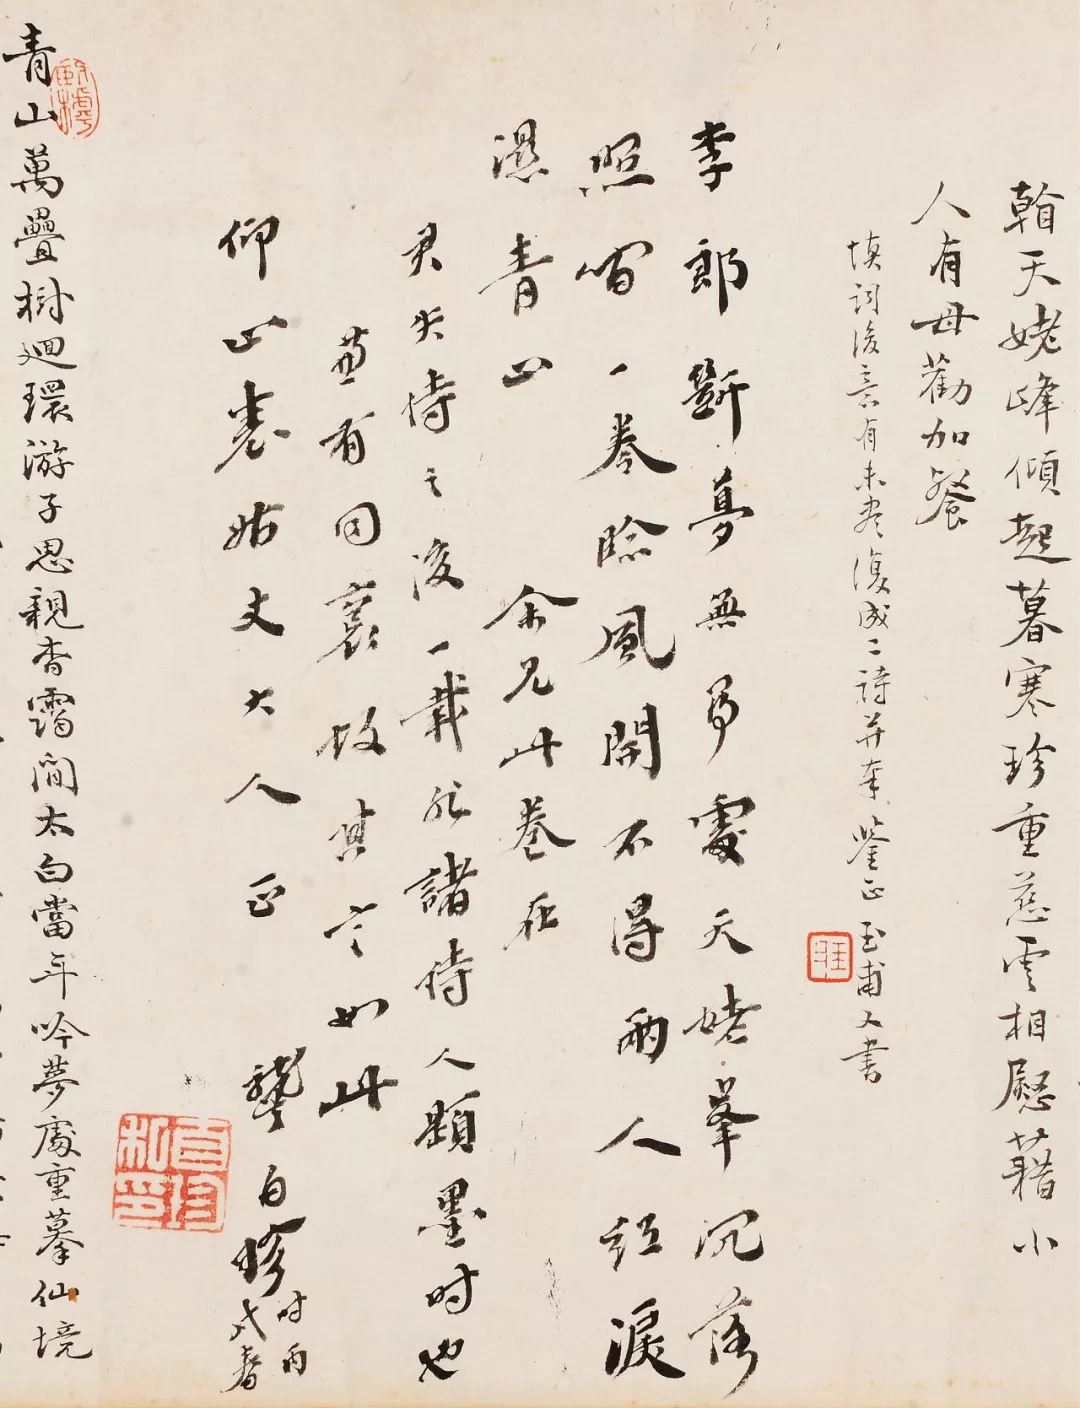 翰天姥峰傾起暮寒珍重慈雲相慰藉小
人有母勸加餐
填詞後意有未盡復成二詩并奉鑒正 玉甫又書
李郎斷夢無尋處天姥峯沉落
照間一卷臨風開不得兩人紅淚
濕青山 余見此卷在
君失恃之後一載非諸侍人題墨時也
蓋有同哀故其言如此
仰山表姑丈大人正 龔自珍
時丙
戌春
青山萬疊樹迴環游子思親杳靄間太白當年吟夢處重摹仙境